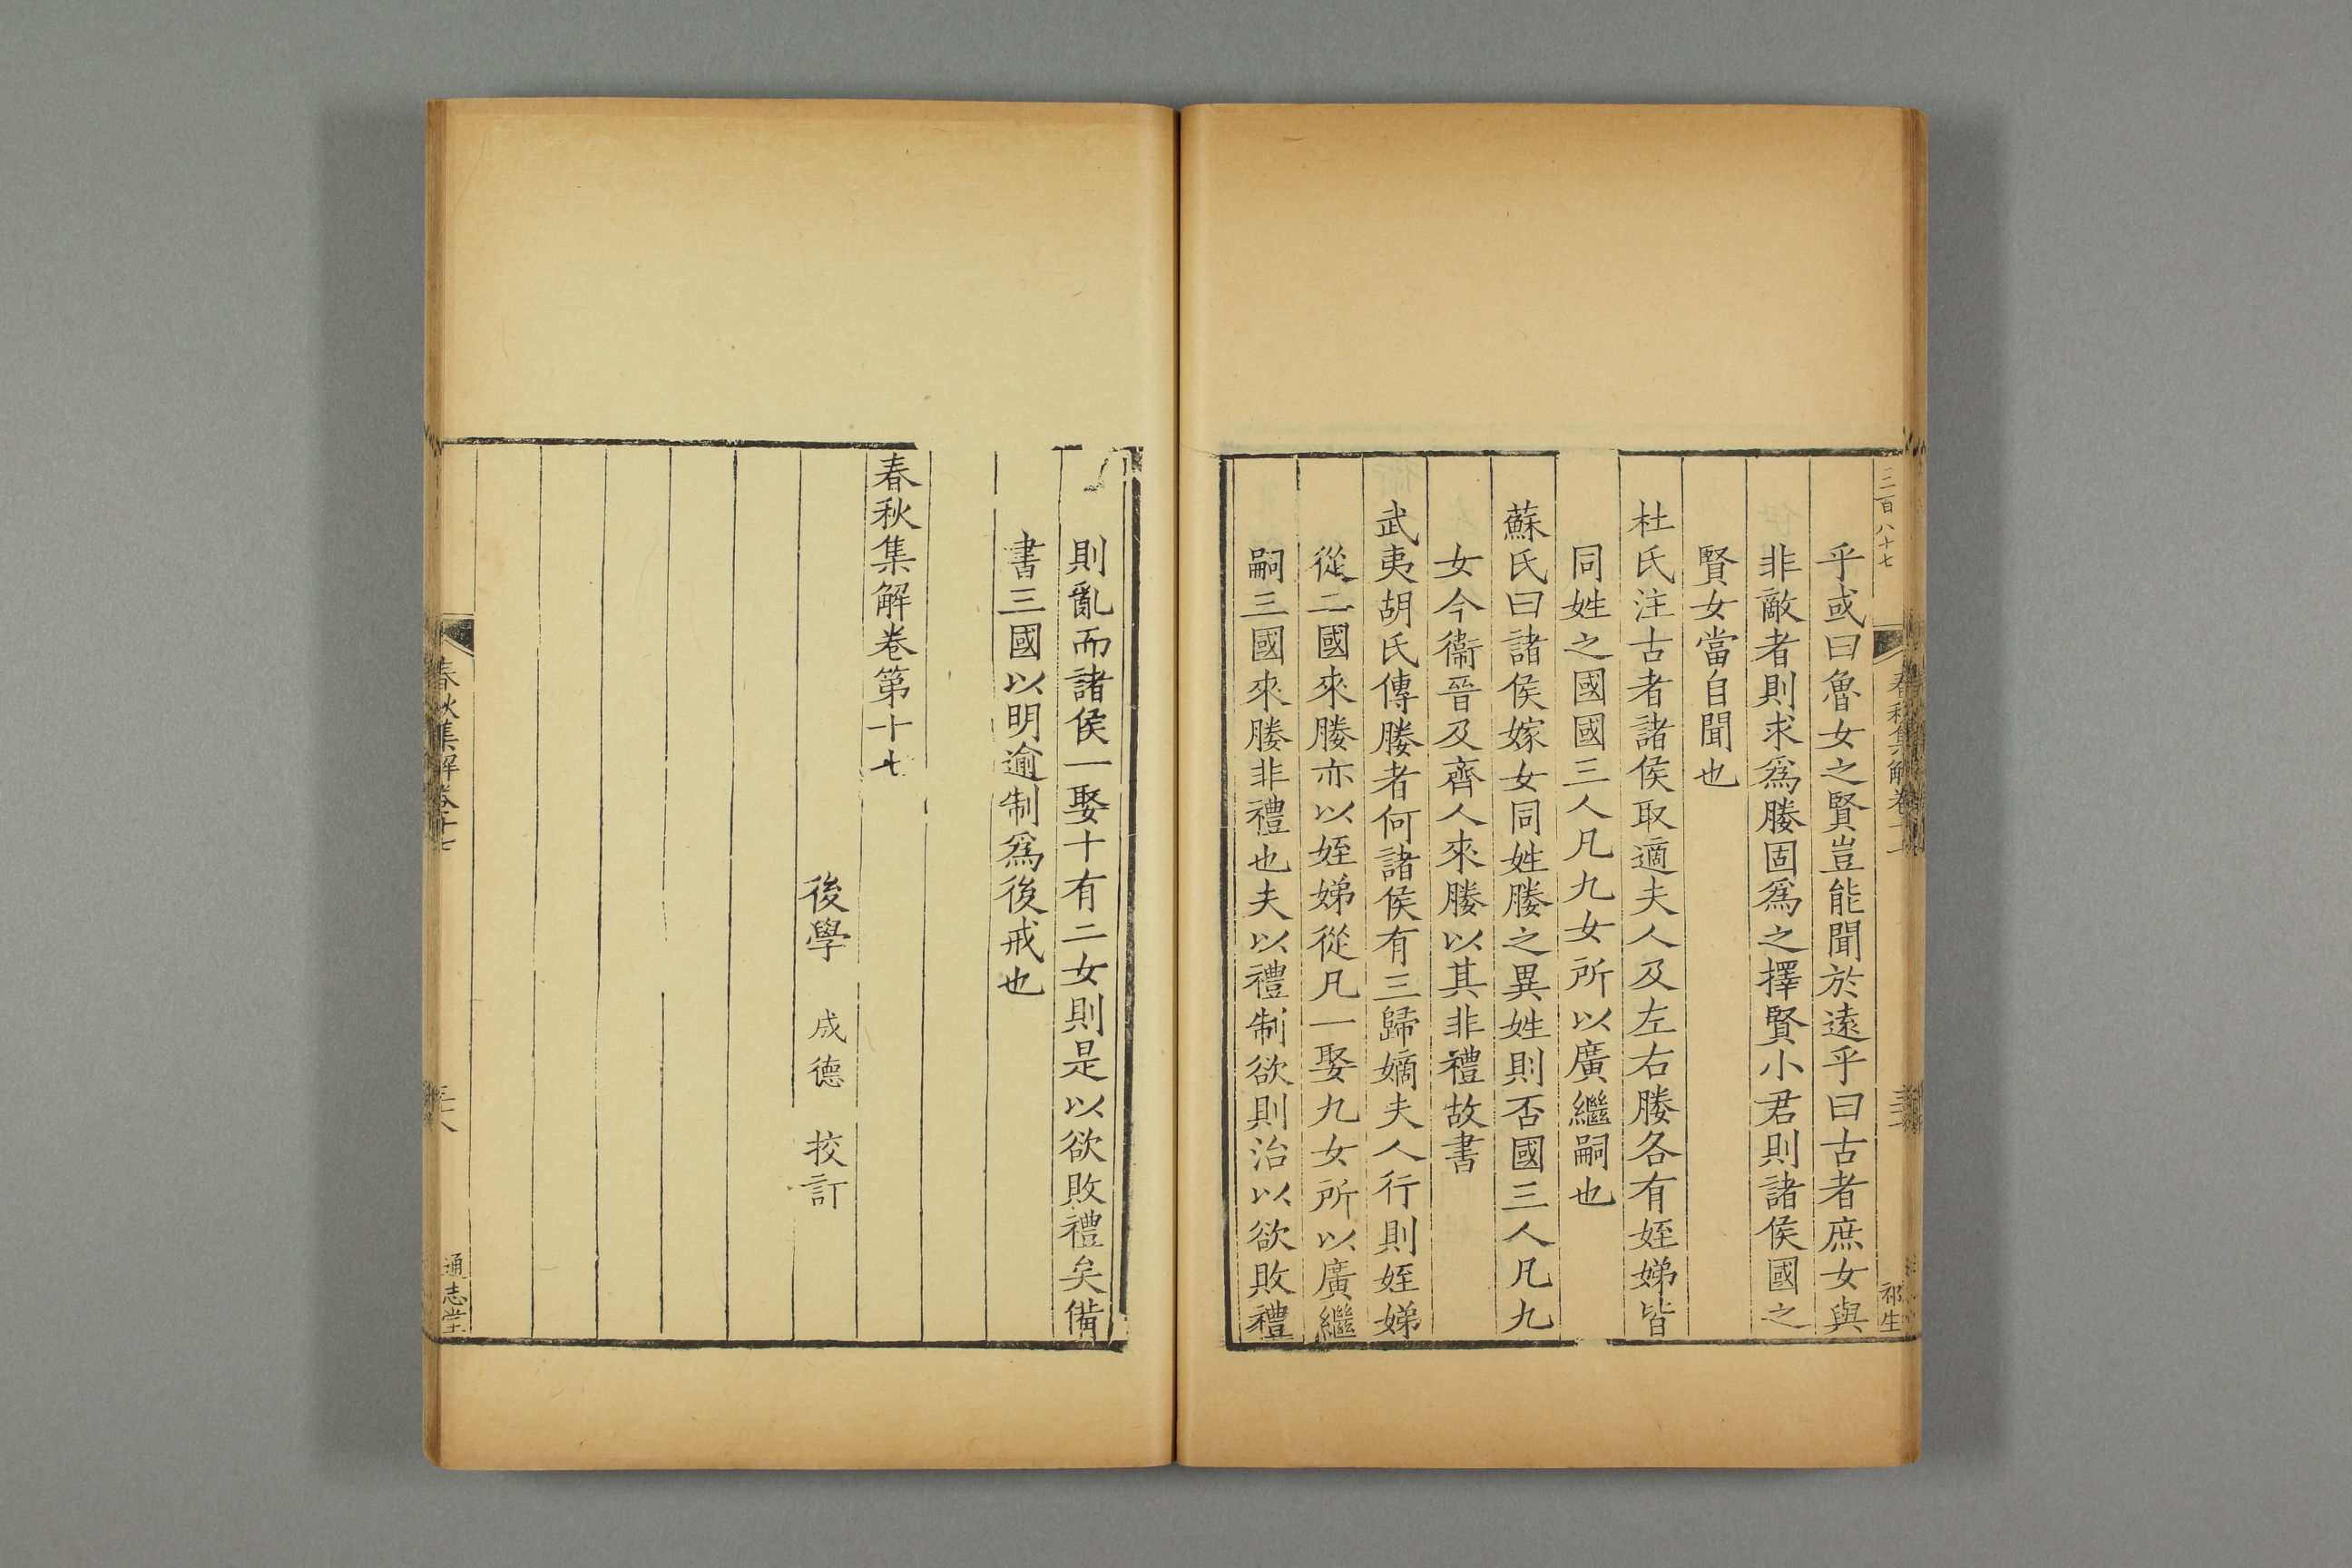 三百八十七
春秋集解卷十七
祁生
乎或曰魯女之賢豈能聞於遠乎曰古者庶女與
非敵者則求爲媵固爲之擇賢小君則諸侯國之
賢女當自聞也
杜氏注古者諸侯取適夫人及左右媵各有姪娣皆
同姓之國國三人凡九女所以廣繼嗣也
蘇氏曰諸侯嫁女同姓媵之異姓則否國三人凡九
女今衞晉及齊人來媵以其非禮故書
武夷胡氏傳媵者何諸侯有三歸嫡夫人行則姪娣
從二國來媵亦以姪娣從凡一娶九女所以廣繼
嗣三國來媵非禮也夫以禮制欲則治以欲敗禮
則亂而諸侯一娶十有二女則是以欲敗禮矣備
書三國以明逾制爲後戒也
春秋集解卷第十七
後學 成德 挍訂
春秋集解卷十七
通志堂